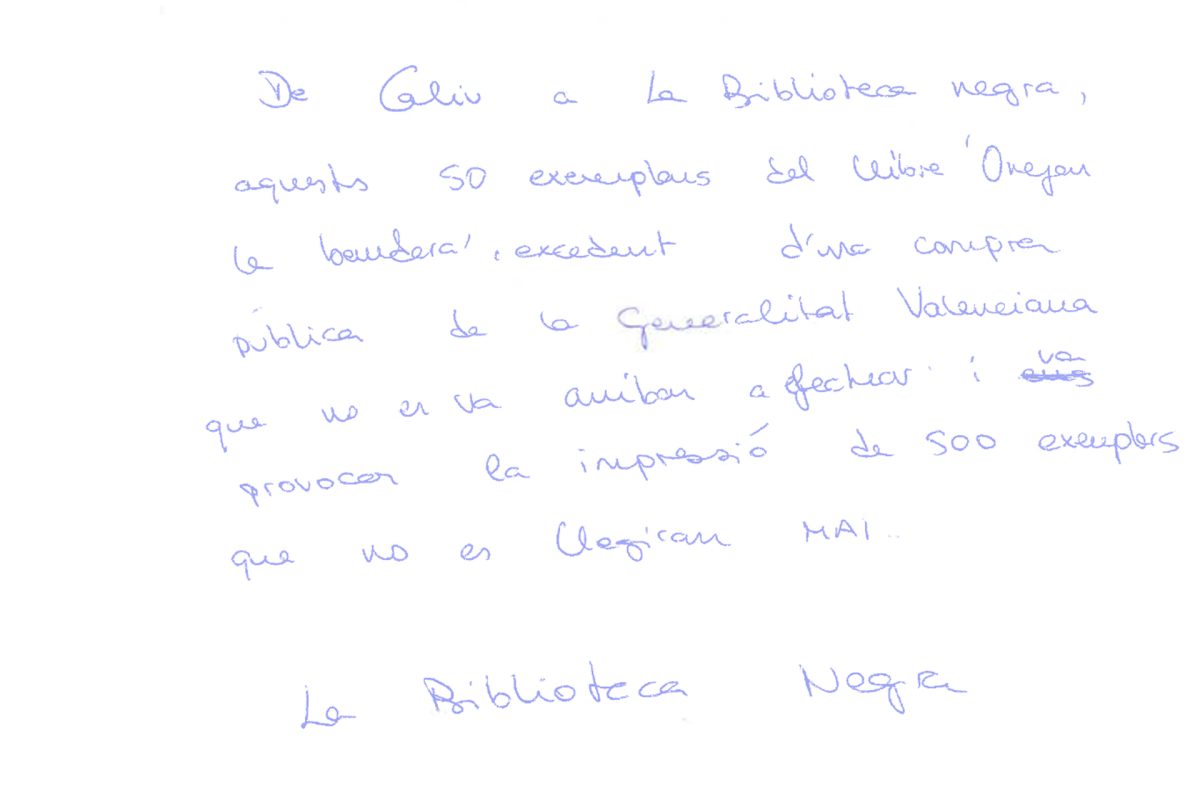 De Caliu a La Biblioteca negra,
aquests 50 exemplars del llibre 'Onegen
la bandera', excedent d'una compra
pública de la Generalitat Valenciana
que no es va arribar a efectuar i va
provocar la impressió de 500 exemplars
que no es llegiran MAI..
La Biblioteca Negra